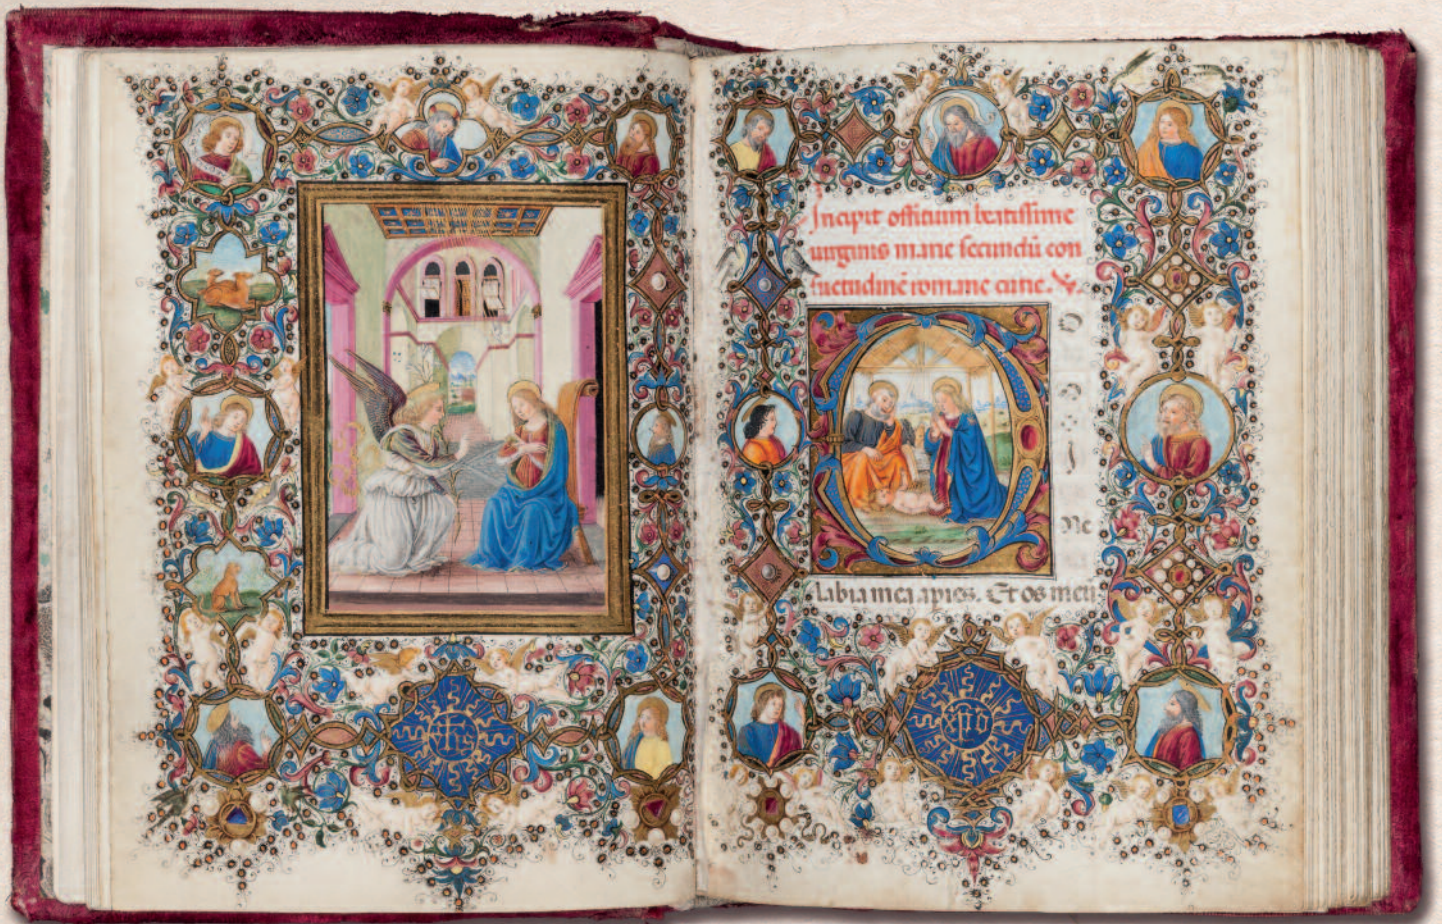 Incipit offitium beatissime
uirginis marie secundũ con
suetudinẽ romane curie. V.
O
ne
labia mea aperies. Et os meũ
yhs
xpō